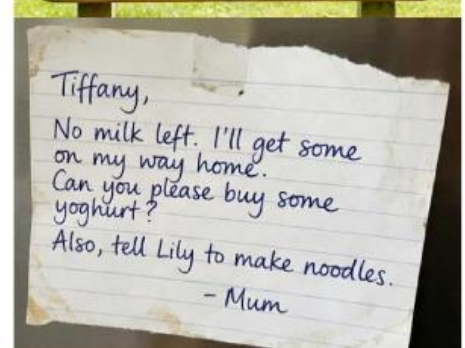 Tiffany,
No milk left. I'll get some
on my way home.
Can you please buy some
yoghurt?
Also, tell Lily to make noodles.
- Mum